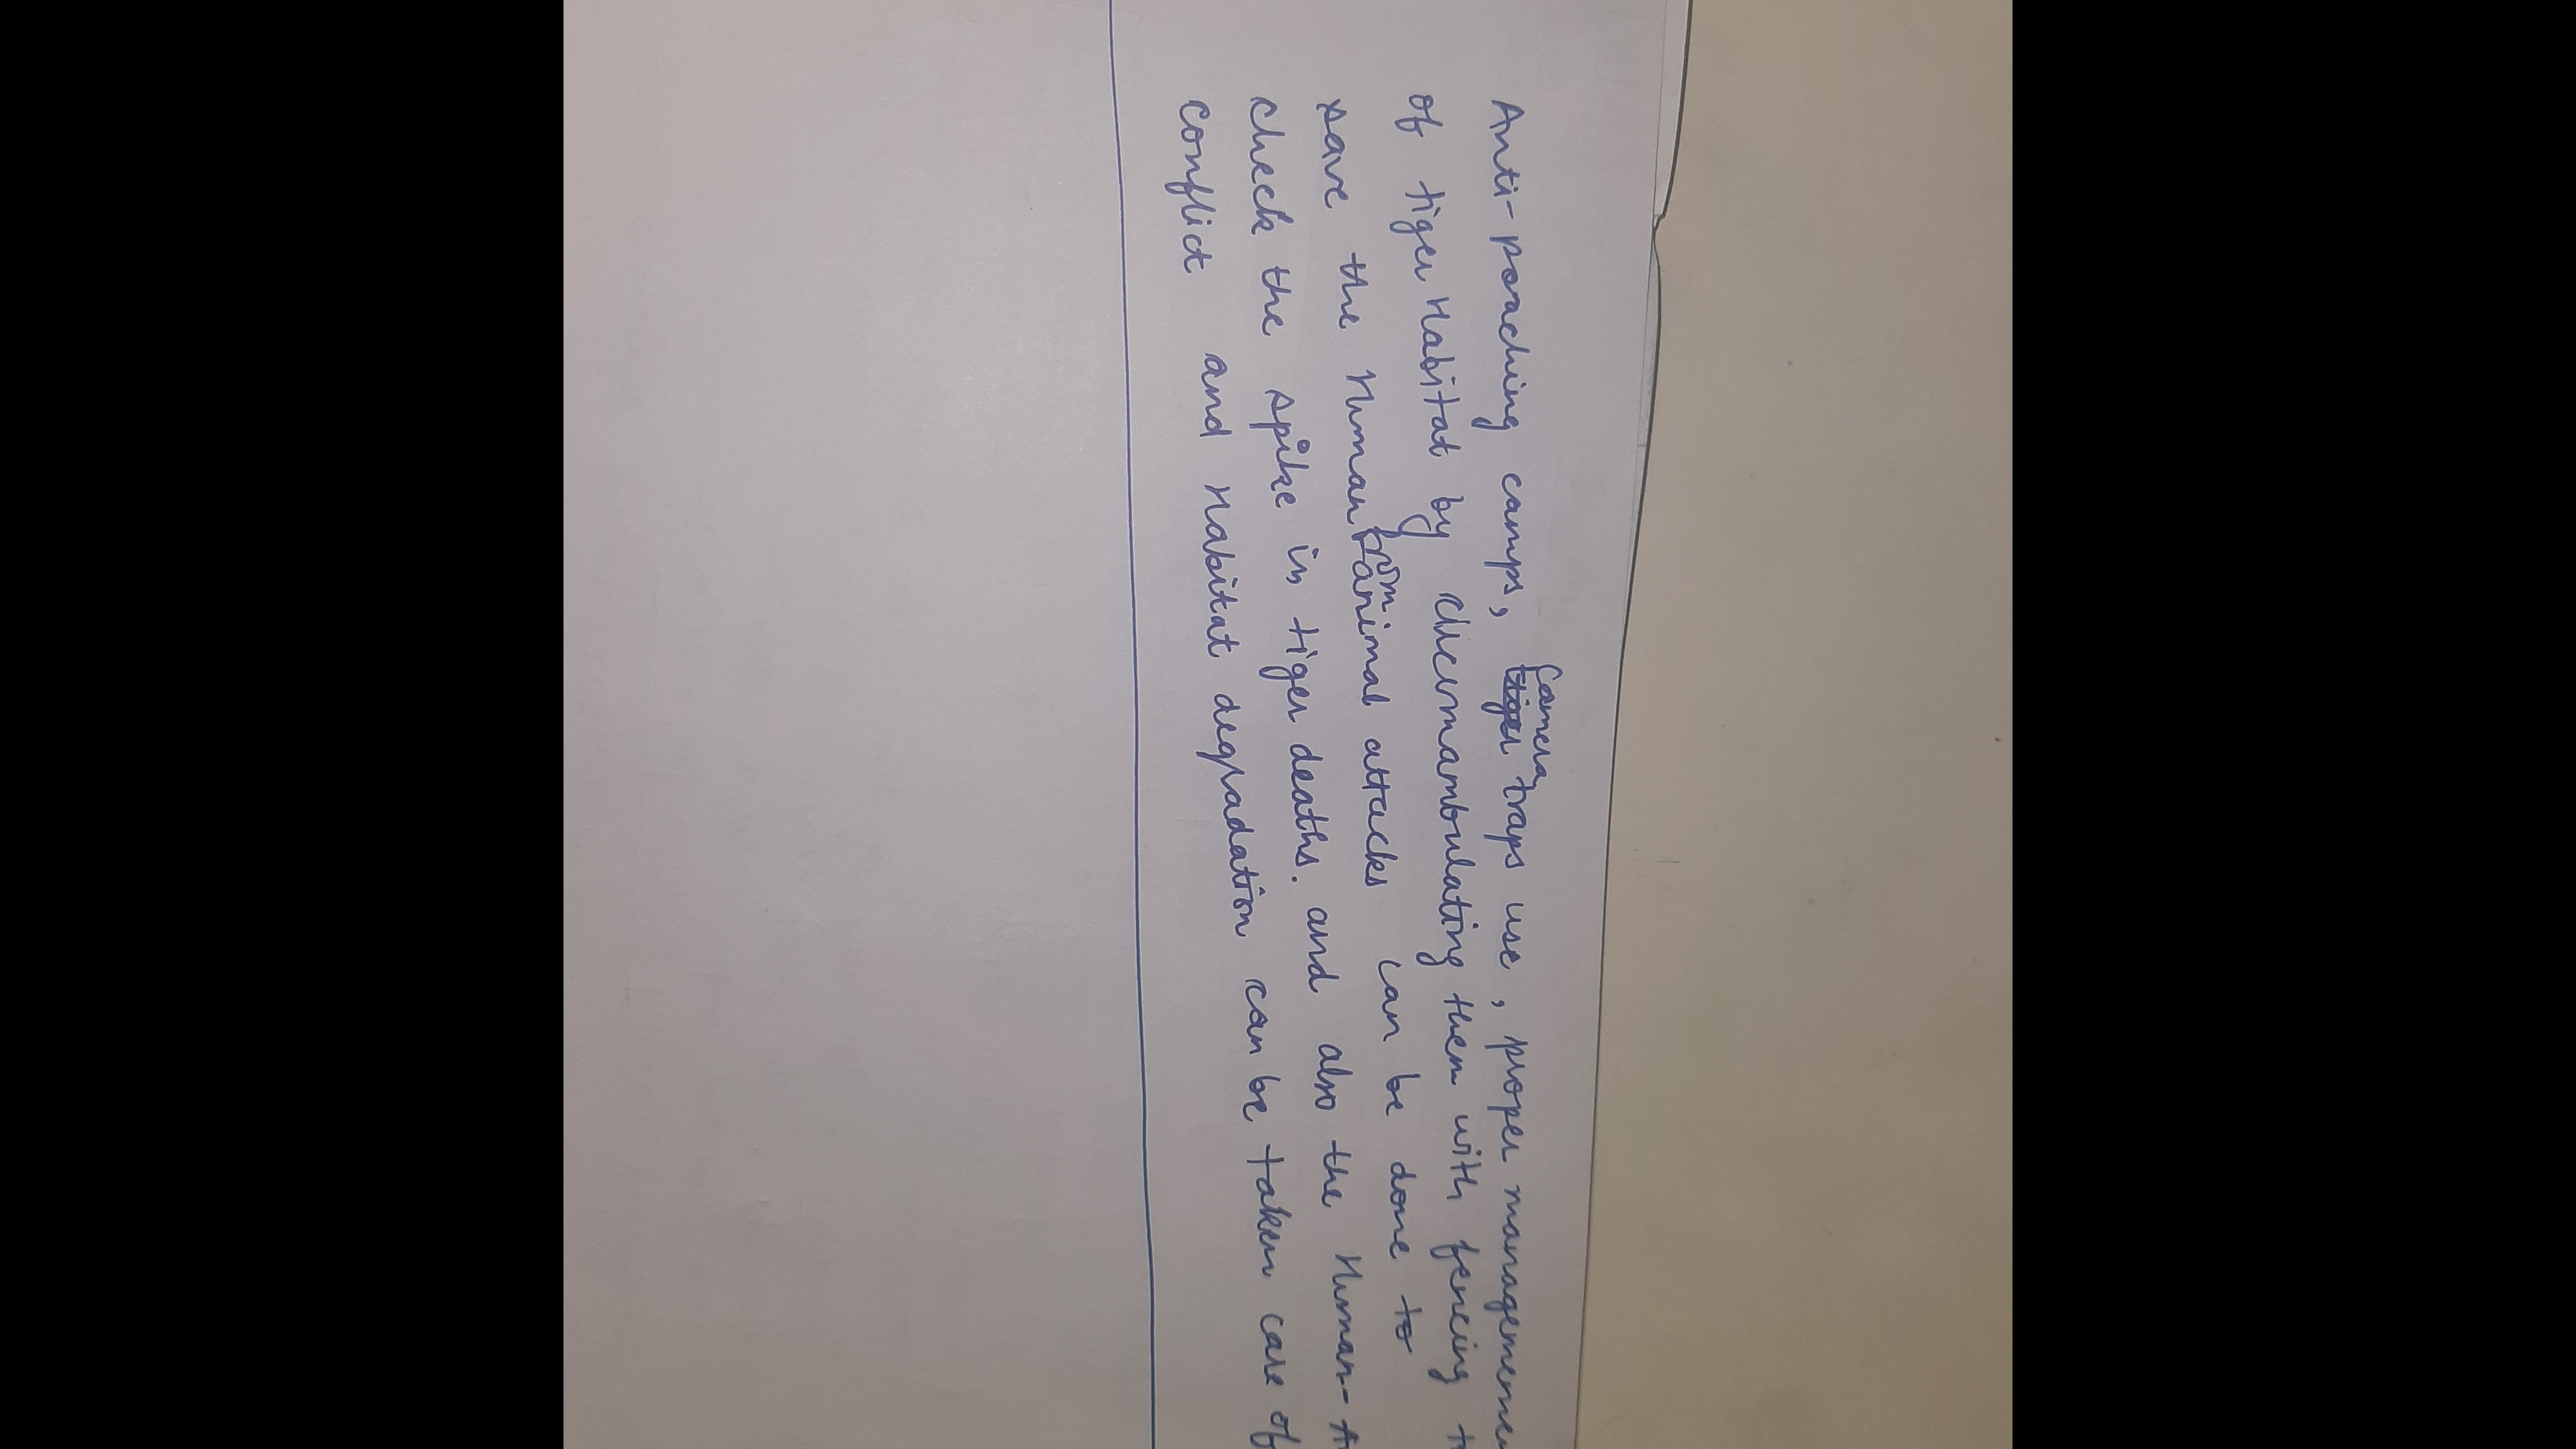 Anti-poaching camps, camera traps use, proper
of tiger Habitat by circumambulating them with fencing
save the Human from animal attacks can be done to
check the spike in tiger deaths. and also the Human-
conflict and Habitat degradation can be taken care of